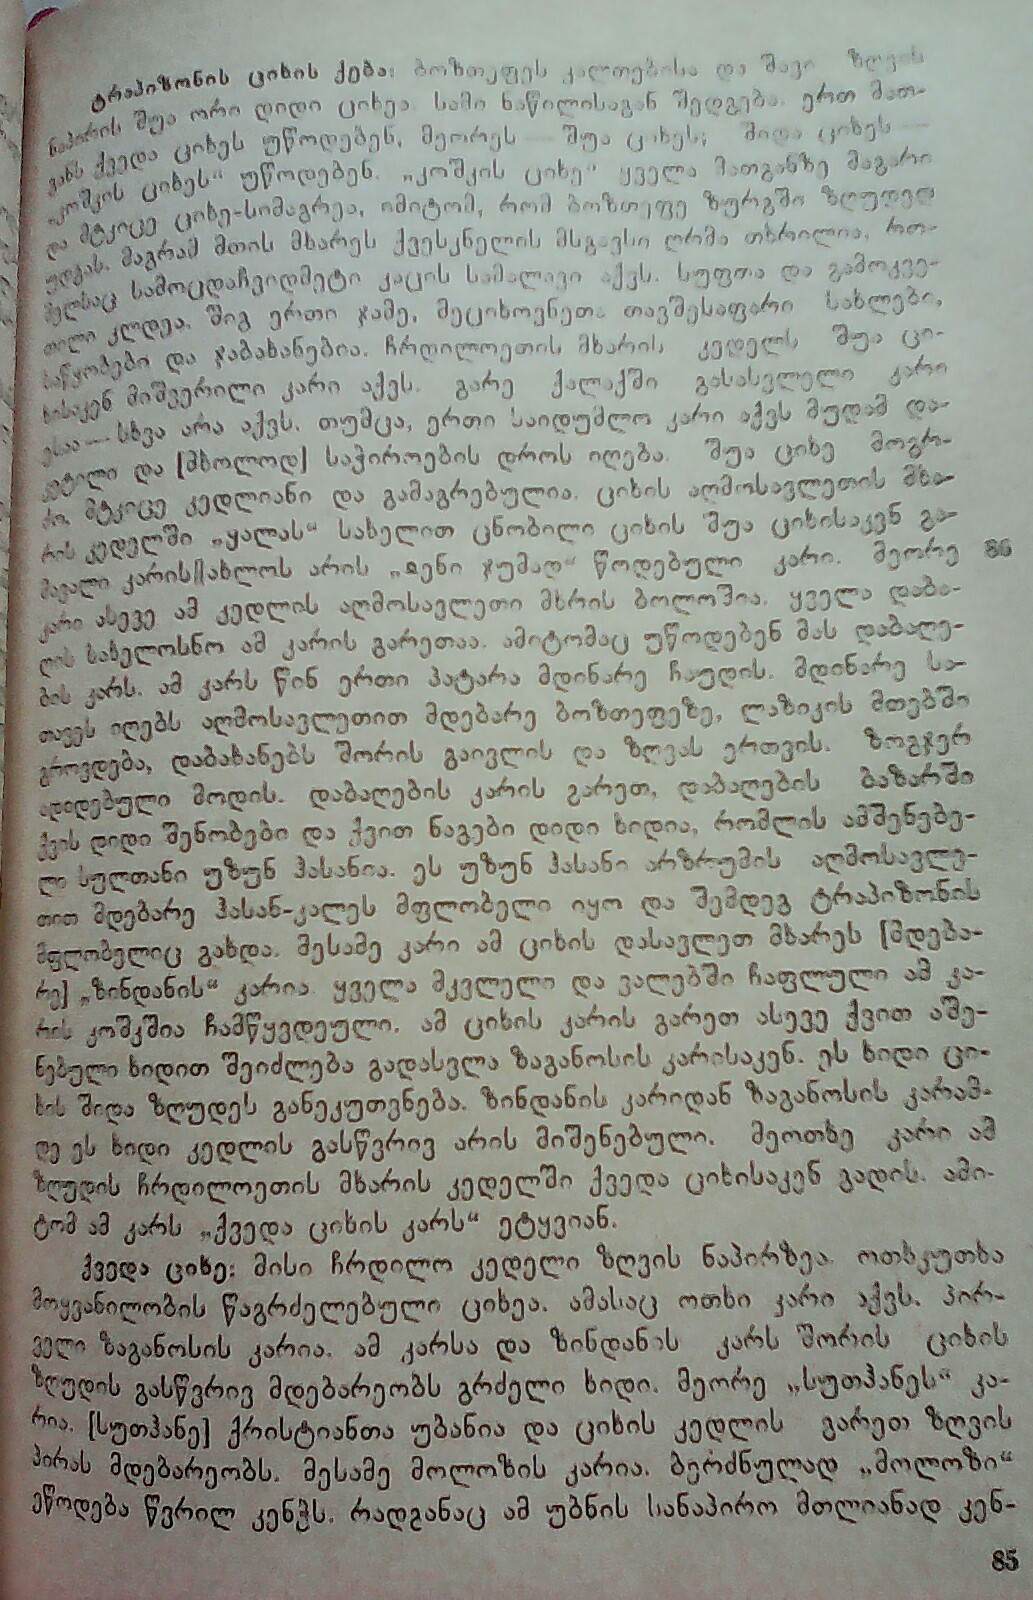 ტრაპიზონის ციხის ქება: ბოზთეფეს კალთებისა და შავი ზღვის
ნაპირის შუა ორი დიდი ციხეა. სამი ნაწილისაგან შედგება. ერთ მათ-
განს ქვედა ციხეს უწოდებენ, მეორეს — შუა ციხეს; შიდა ციხეს —
„კოშკის ციხეს“ უწოდებენ. „კოშკის ციხე“ ყველა მათგანზე მაგარი
და მტკიცე ციხე-სიმაგრეა, იმიტომ, რომ ბოზთეფე ზურგში ზღუდედ
უდგას. მაგრამ მთის მხარეს ქვესკნელის მსგავსი ღრმა თხრილია, რო-
მელსაც სამოცდაჩვიდმეტი კაცის სამალავი აქვს. სუფთა და გამოკვე-
თილი კლდეა. შიგ ერთი ჯამე, მეციხოვნეთა თავშესაფარი სახლები,
საწყობები და ჯაბახანებია. ჩრდილოეთის მხარის კედელს შუა ცი-
ხისაკენ მიშვერილი კარი აქვს. გარე ქალაქში გასასვლელი კარი
ესაა — სხვა არა აქვს. თუმცა, ერთი საიდუმლო კარი აქვს მუდამ და-
კეტილი და [მხოლოდ] საჭიროების დროს იღება. შუა ციხე მოგრ-
ძო, მტკიცე კედლიანი და გამაგრებულია. ციხის აღმოსავლეთის მხა-
რის კედელში „ყალას“ სახელით ცნობილი ციხის შუა ციხისაკენ გა-
მავალი კარის||ახლოს არის „ჲენი ჯუმად“ წოდებული კარი. მეორე 86
კარი ასევე ამ კედლის აღმოსავლეთი მხრის ბოლოშია. ყველა დაბა-
ღის სახელოსნო ამ კარის გარეთაა. ამიტომაც უწოდებენ მას დაბაღე-
ბის კარს. ამ კარს წინ ერთი პატარა მდინარე ჩაუდის. მდინარე სა-
თავეს იღებს აღმოსავლეთით მდებარე ბოზთეფეზე, ლაზიკის მთებში
გროვდება, დაბახანებს შორის გაივლის და ზღვას ერთვის. ზოგჯერ
ადიდებული მოდის. დაბაღების კარის გარეთ, დაბაღების ბაზარში
ქვის დიდი შენობები და ქვით ნაგები დიდი ხიდია, რომლის ამშენებე-
ლი სულთანი უზუნ ჰასანია. ეს უზუნ ჰასანი არზრუმის აღმოსავლე-
თით მდებარე ჰასან-კალეს მფლობელი იყო და შემდეგ ტრაპიზონის
მფლობელიც გახდა. მესამე კარი ამ ციხის დასავლეთ მხარეს [მდება-
რე] „ზინდანის“ კარია. ყველა მკვლელი და ვალებში ჩაფლული ამ კა-
რის კოშკშია ჩამწყვდეული. ამ ციხის კარის გარეთ ასევე ქვით აშე-
ნებული ხიდით შეიძლება გადასვლა ზაგანოსის კარისაკენ. ეს ხიდი ცი-
ხის შიდა ზღუდეს განეკუთვნება. ზინდანის კარიდან ზაგანოსის კარამ-
დე ეს ხიდი კედლის გასწვრივ არის მიშენებული. მეოთხე კარი ამ
ზღუდის ჩრდილოეთის მხარის კედელში ქვედა ციხისაკენ გადის. ამი-
ტომ ამ კარს „ქვედა ციხის კარს“ ეტყვიან.
ქვედა ციხე: მისი ჩრდილო კედელი ზღვის ნაპირზეა. ოთხკუთხა
მოყვანილობის წაგრძელებული ციხეა. ამასაც ოთხი კარი აქვს. პირ-
ველი ზაგანოსის კარია. ამ კარსა და ზინდანის კარს შორის ციხის
ზღუდის გასწვრივ მდებარეობს გრძელი ხიდი. მეორე „სუთჰანეს“ კა-
რია. [სუთჰანე] ქრისტიანთა უბანია და ციხის კედლის გარეთ ზღვის
პირას მდებარეობს. მესამე მოლოზის კარია. ბერძნულად „მოლოზი“
ეწოდება წვრილ კენჭს. რადგანაც ამ უბნის სანაპირო მთლიანად კენ-
85